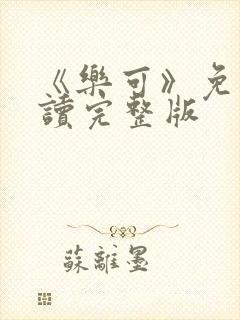 《樂可》免
讀完整版
蘇離墨